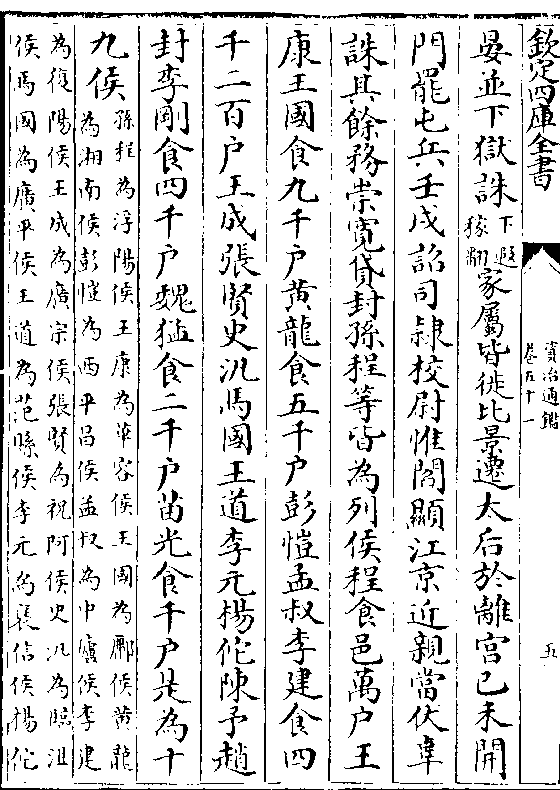 欽定四庫全書
資治通鑑
卷五十一
五
晏並下獄誅下遐稼翻家屬皆徙比景遷太后於離宮己未開
門罷屯兵壬戌詔司隸校尉惟閻顯江京近親當伏辜
誅其餘務崇寬貸封孫程等皆為列侯程食邑萬户王
康王國食九千户黄龍食五千户彭愷孟叔李建食四
千二百户王成張賢史汎馬國王道李元楊佗陳予趙
封李剛食四千户魏猛食二千户苗光食千户是為十
九侯孫程為浮陽侯王康為華容侯王國為酈侯黄龍
為湘南侯彭愷為西平昌侯孟叔為中廬侯李建
為復陽侯王成為廣宗侯張賢為祝阿侯史汎為臨沮
侯馬國為廣平侯王道為范縣侯李元為襃信侯楊佗